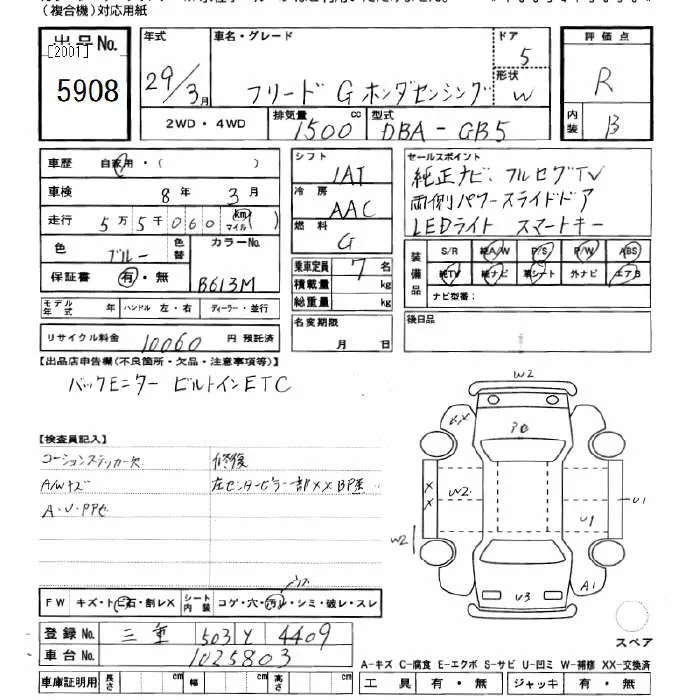 (複合機)対応用紙
出品No.
[2001]
5908
年式
29/3月
車名・グレード
フリード G ホンダセンシング
ドア
5
形状
W
2WD・4WD
排気量
1500 cc
型式
DBA-GB5
評価点
R
内装
B
車歴 自家用・( )
車検 8年 3月
走行 5万5千060 km マイル
色 ブルー
色替
カラーNo.
B613M
保証書 有・無
モデル年式 年 ハンドル 左・右 ディーラー・並行
リサイクル料金 10060 円 預託済
シフト
IAT
冷房
AAC
燃料
G
乗車定員 7 名
積載量 kg
総重量 kg
名変期限
月 日
セールスポイント
純正ナビ フルセグTV
両側パワースライドドア
LEDライト スマートキー
装備品
S/R 純A/W P/S P/W ABS
純TV 純ナビ 革シート 外ナビ エアB
ナビ型番:
後日品
【出品店申告欄(不良箇所・欠品・注意事項等)】
バックモニター ビルトインETC
【検査員記入】
コーションステッカー欠
A/Wキズ
A・U・PP等
修復
左センターピラー一部XX BP

W2
XX
W2
W2
U1
U1
A1
U3
スペア
FW キズ・トビ石・割レX シート内装 コゲ・穴・汚レ・シミ・破レ・スレ
登録No. 三重 503 Y 4409
車台No. 1025803
車庫証明用 長さ cm 幅 cm 高さ cm
A-キズ C-腐食 E-エクボ S-サビ U-凹ミ W-補修 XX-交換済
工具 有・無 ジャッキ 有・無